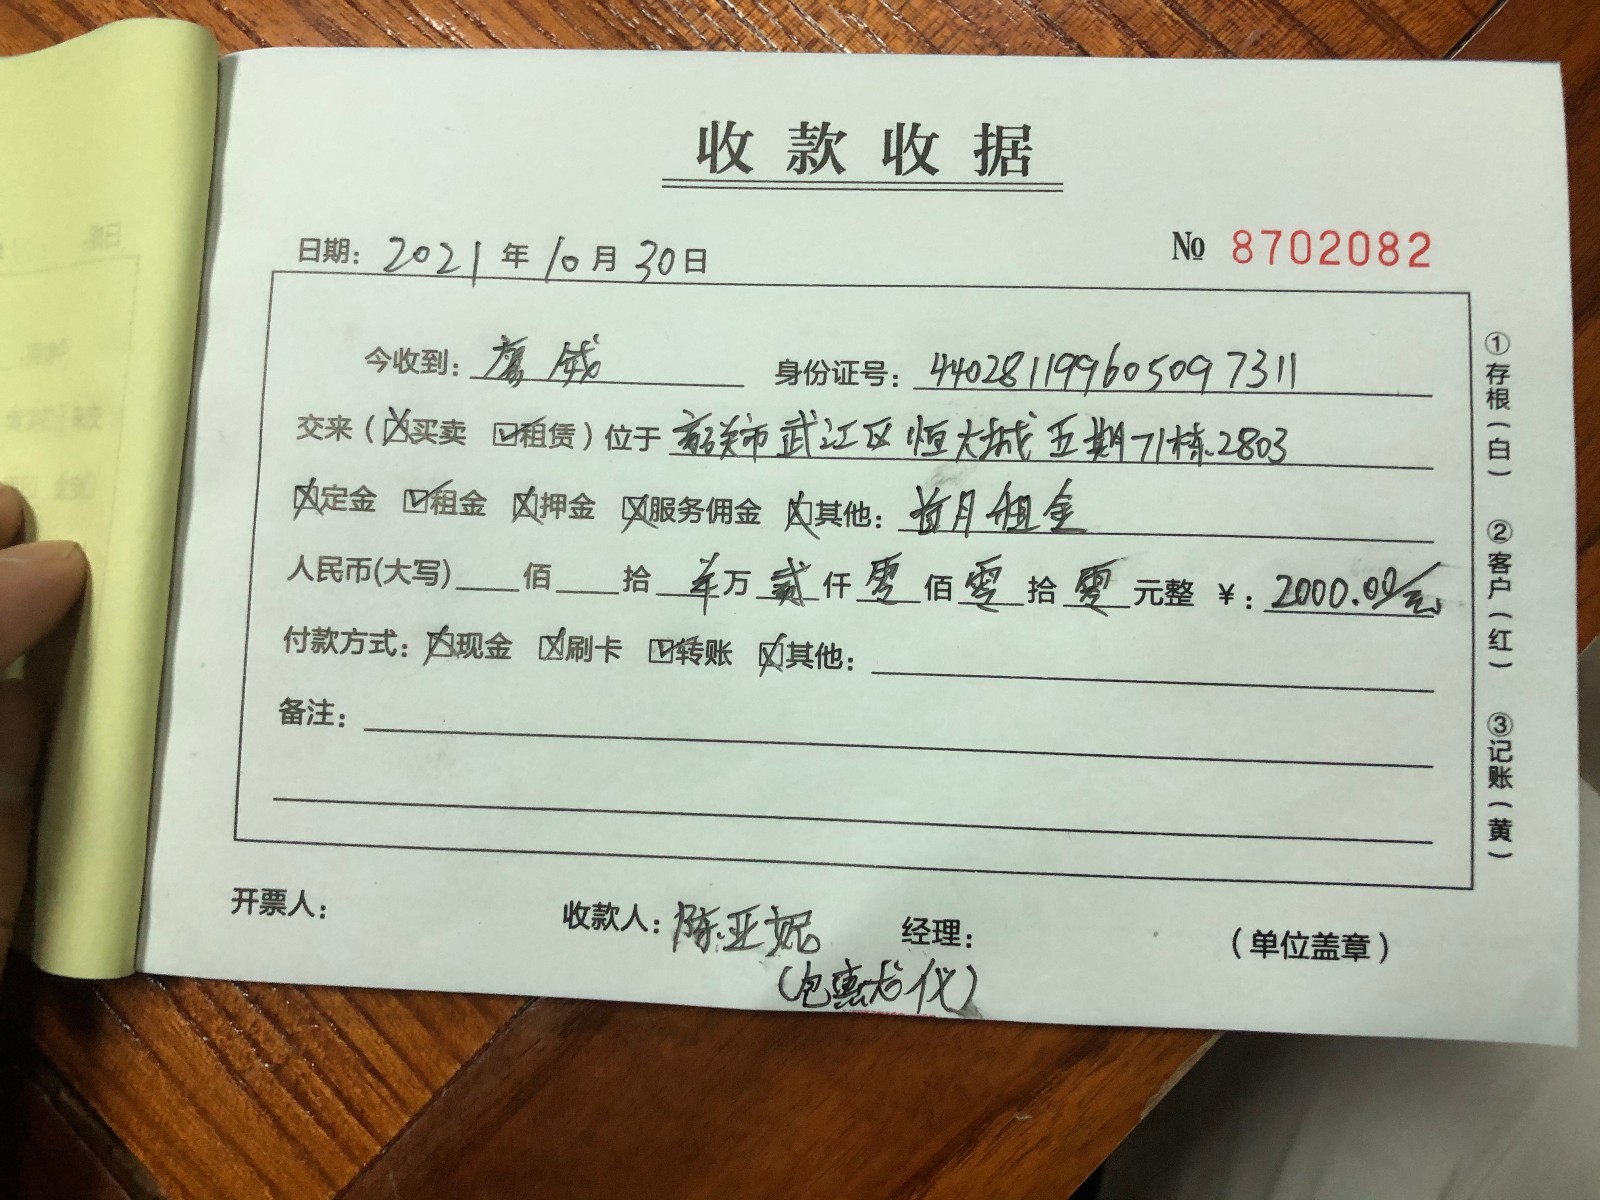 收款收据
日期：2021年10月30日 № 8702082
今收到：廖威 身份证号：440281199605097311
交来（☒买卖 ☑租赁）位于 韶关市武江区恒大城五期71栋2803
☒定金 ☑租金 ☒押金 ☒服务佣金 ☒其他：首月租金
人民币(大写) 佰 拾 万 贰仟零佰零拾零元整 ¥：2000.00元
付款方式：☒现金 ☒刷卡 ☑转账 ☒其他：
备注：
开票人： 收款人：陈亚妮 经理： （单位盖章）
①存根（白）
②客户（红）
③记账（黄）